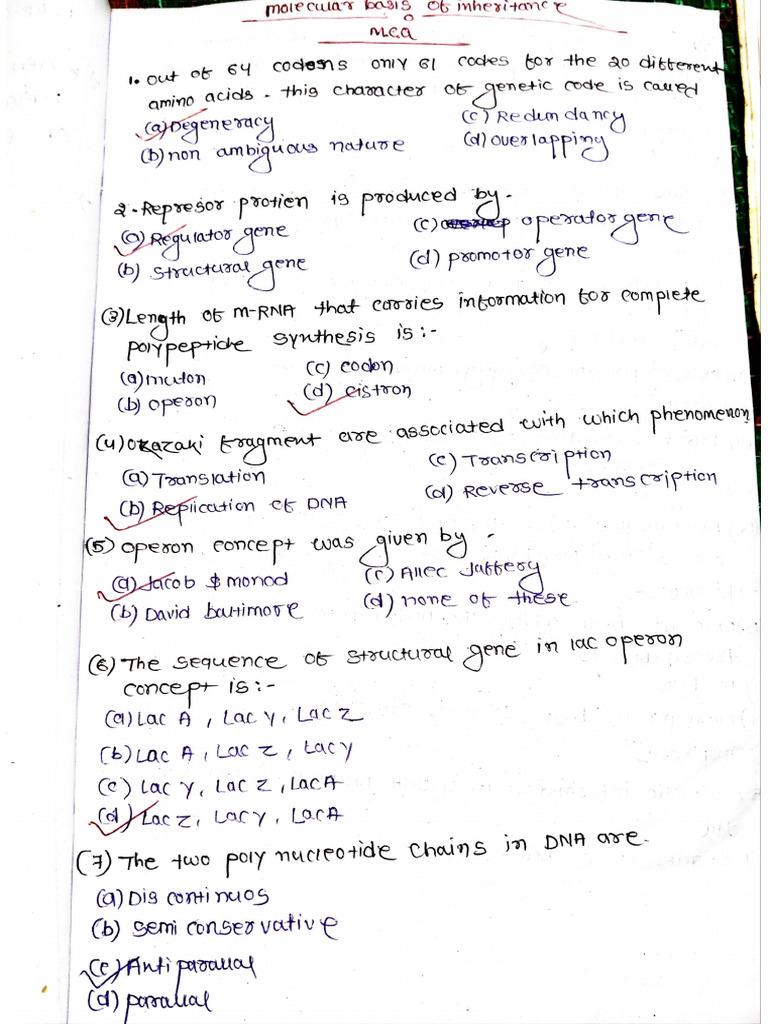 molecular basis of inheritance
M.C.Q
1. out of 64 codons only 61 codes for the 20 different
amino acids. this character of genetic code is called
(a) Degeneracy (c) Redundancy
(b) non ambiguous nature (d) overlapping
2. Represor protien is produced by -
(a) Regulator gene (c) operator gene
(b) structural gene (d) promotor gene
(3) Length of m-RNA that carries information for complete
polypeptide synthesis is :-
(a) muton (c) codon
(b) operon (d) cistron
(4) okazaki fragment are associated with which phenomenon
(a) Translation (c) Transcription
(b) Replication of DNA (d) Reverse transcription
(5) operon concept was given by -
(a) Jacob $ monod (c) Allec Jaffery
(b) David baltimore (d) none of these
(6) The sequence of structural gene in lac operon
concept is :-
(a) Lac A, Lac Y, Lac Z
(b) Lac A, Lac Z, Lac Y
(c) Lac Y, Lac Z, Lac A
(d) Lac Z, Lac Y, Lac A
(7) The two poly nucleotide chains in DNA are.
(a) Dis continuos
(b) semi conservative
(c) Anti parallal
(d) parallal